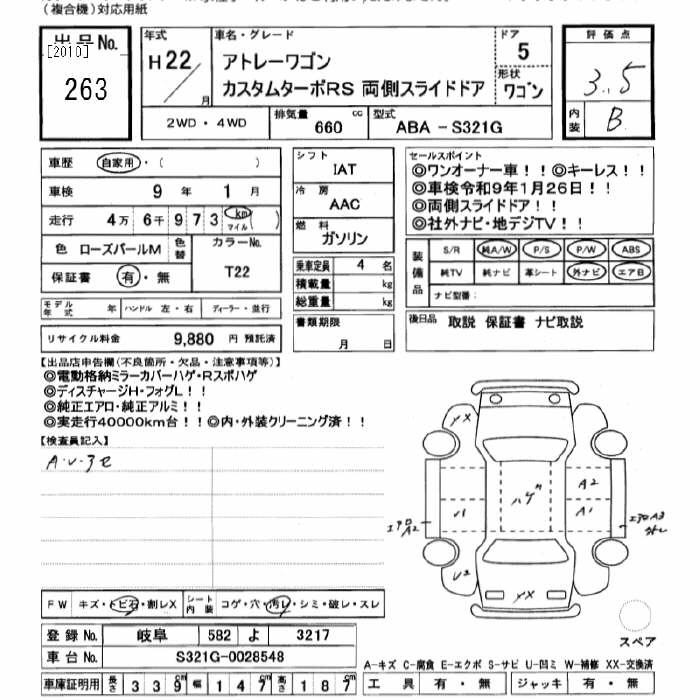 （複合機）対応用紙
出品No.
[2010]
263
年式
H22／月
車名・グレード
アトレーワゴン
カスタムターボRS 両側スライドドア
ドア
5
形状
ワゴン
評価点
3.5
内装
B
2WD・4WD
排気量
660 cc
型式
ABA－S321G
車歴 自家用・（ ）
車検 9 年 1 月
走行 4万 6千 9 7 3 km マイル（ ）
色 ローズパールM
色替
カラーNo.
T22
保証書 有・無
モデル年式 年 ハンドル 左・右 ディーラー・並行
リサイクル料金 9,880 円 預託済
シフト
IAT
冷房
AAC
燃料
ガソリン
乗車定員 4 名
積載量 kg
総重量 kg
書類期限
月 日
セールスポイント
◎ワンオーナー車！！◎キーレス！！
◎車検令和9年1月26日！！
◎両側スライドドア！！
◎社外ナビ・地デジTV！！
装備品
S/R 純A/W P/S P/W ABS
純TV 純ナビ 革シート 外ナビ エアB
ナビ型番：
後日品 取説 保証書 ナビ取説
【出品店申告欄（不良箇所・欠品・注意事項等）】
◎電動格納ミラーカバーハゲ・Rスポハゲ
◎ディスチャージH・フォグL！！
◎純正エアロ・純正アルミ！！
◎実走行40000km台！！◎内・外装クリーニング済！！
【検査員記入】
A・U・キズ
YX
ハゲ
A2
A1
U1
エアロ
A2
エアロA3
U2
YX
スペア
FW キズ・トビ石・割レX
シート内装 コゲ・穴・汚レ・シミ・破レ・スレ
登録No. 岐阜 582 よ 3217
車台No. S321G-0028548
車庫証明用 長さ 3 3 9 cm 幅 1 4 7 cm 高さ 1 8 7 cm
A-キズ C-腐食 E-エクボ S-サビ U-凹ミ W-補修 XX-交換済
工具 有・無 ジャッキ 有・無